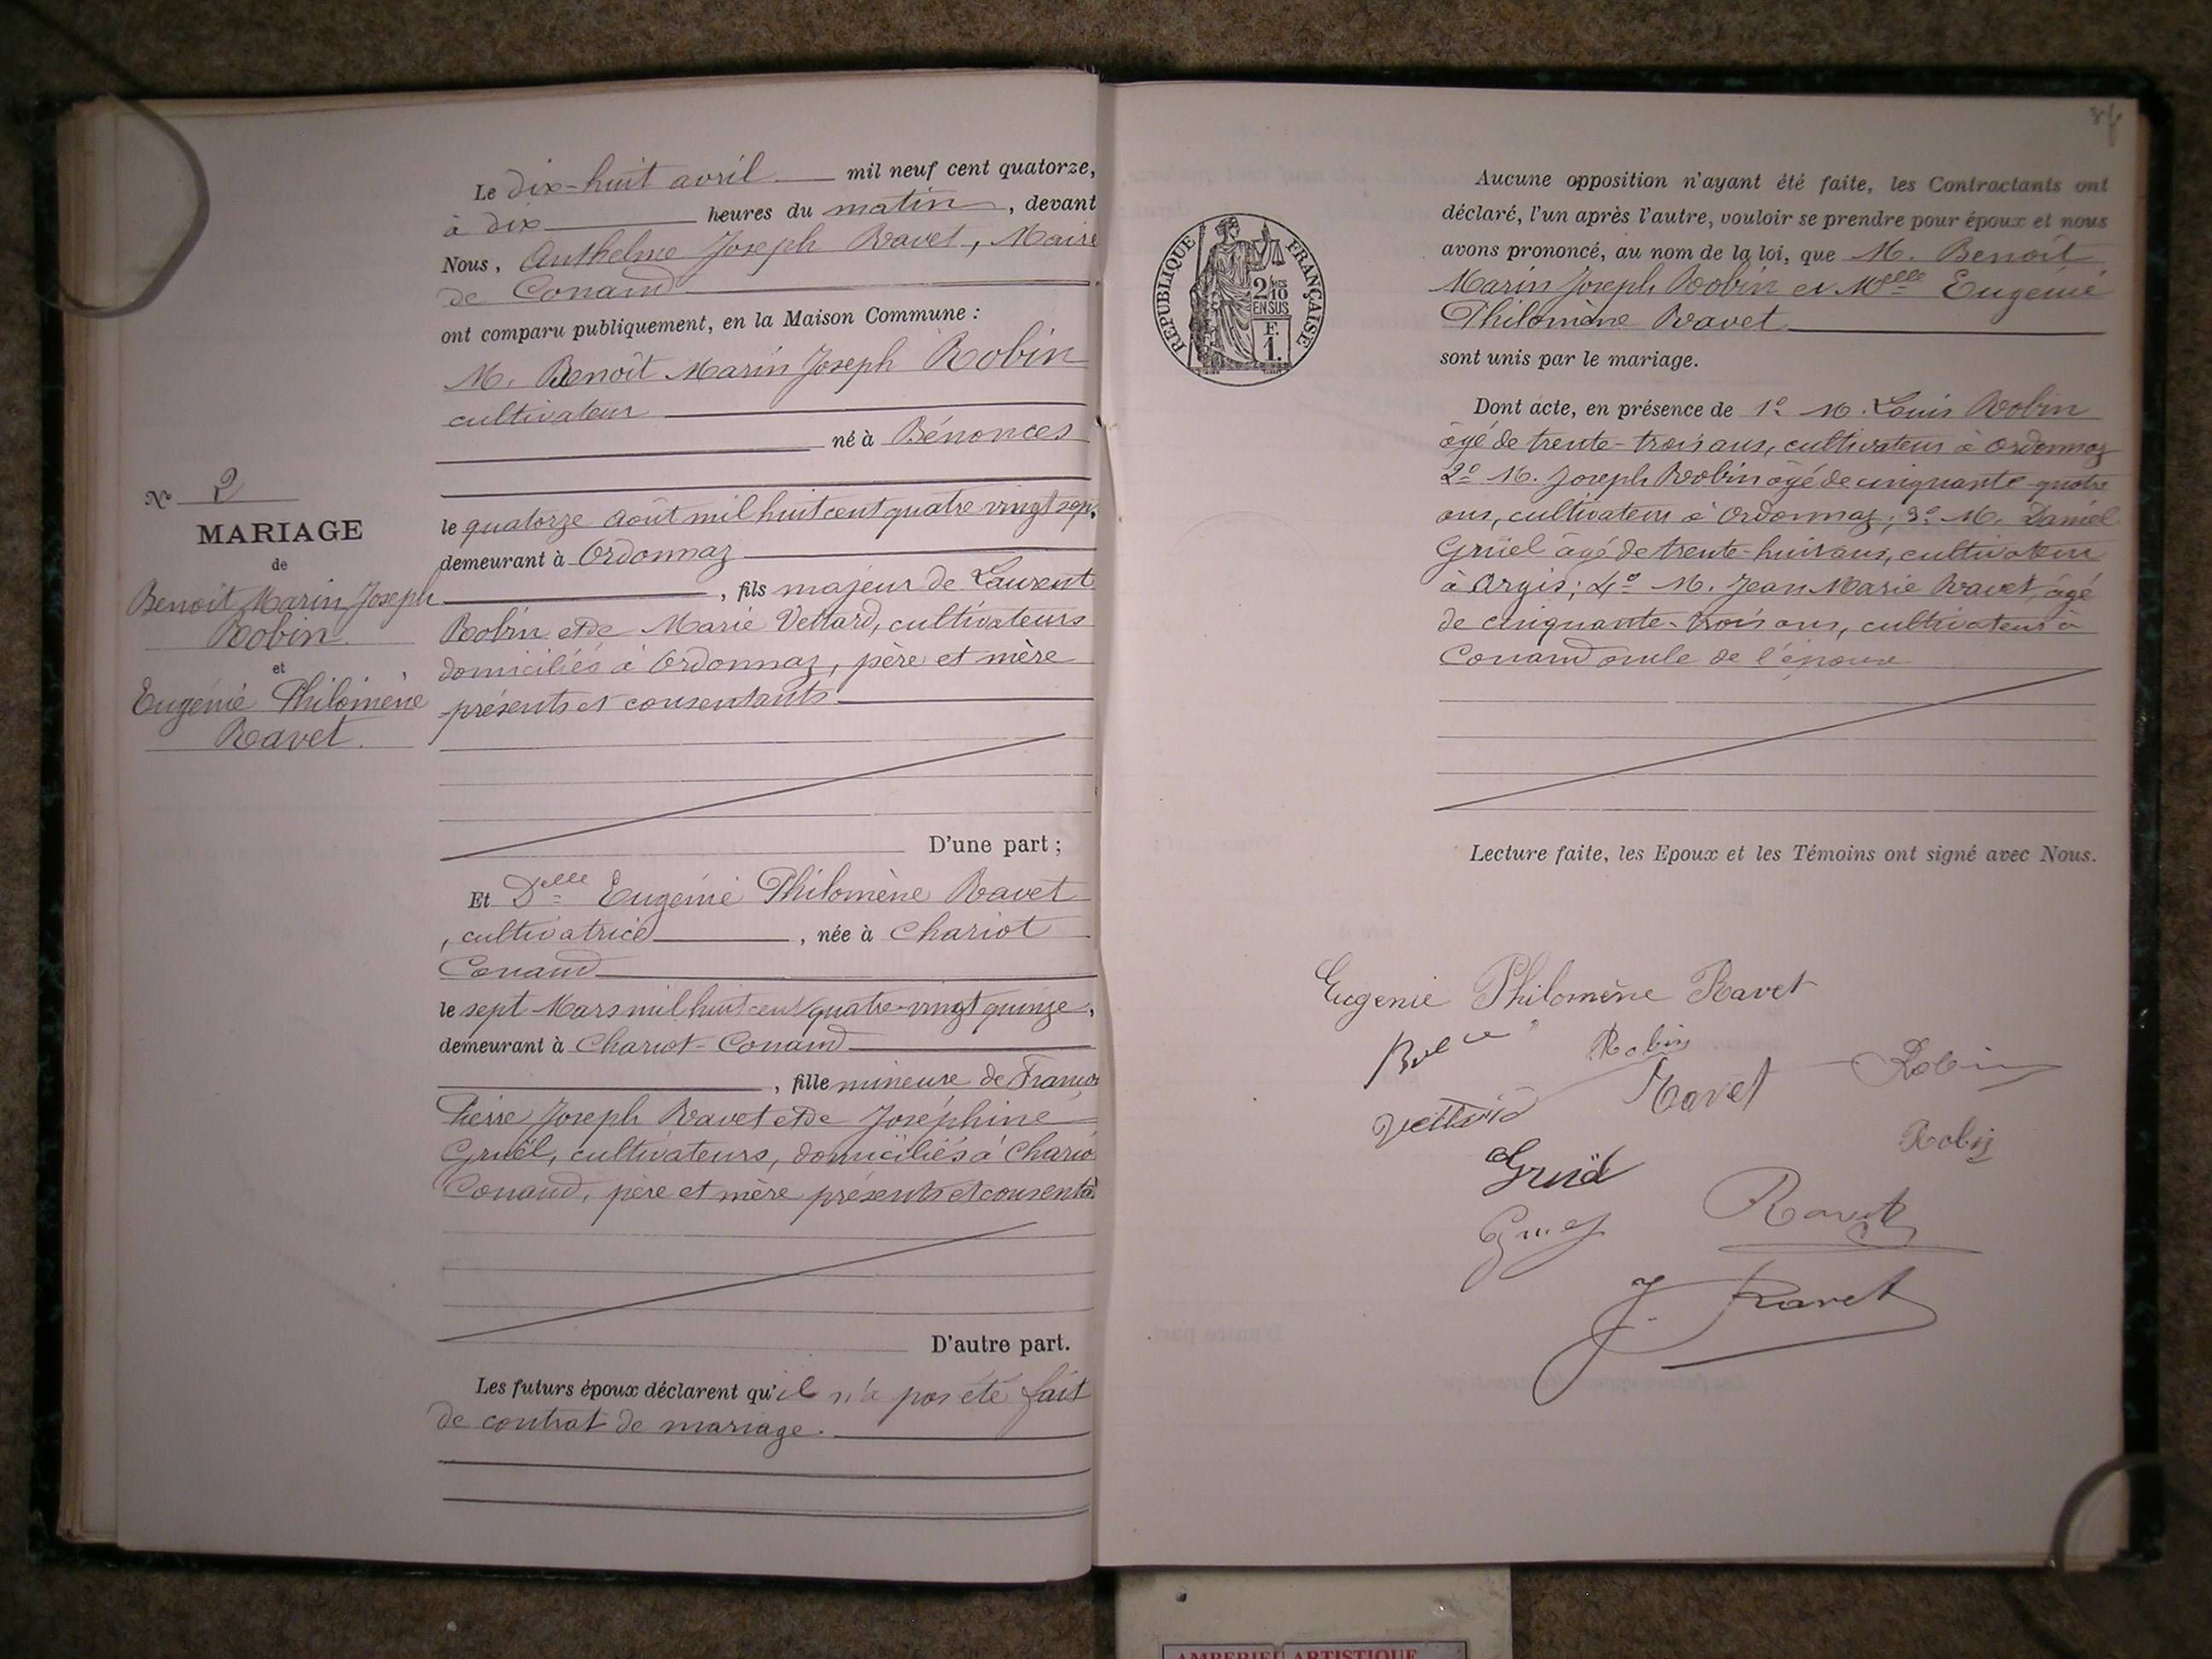 Le dix-huit avril mil neuf cent quatorze,
à dix heures du matin, devant
Nous, Anthelme Joseph Ravet, Maire
de Conand
ont comparu publiquement, en la Maison Commune :
M. Benoît Marin Joseph Robin
cultivateur
né à Bénonces
le quatorze août mil huit cent quatre vingt sept,
demeurant à Ordonnaz
, fils majeur de Laurent
Robin et de Marie Vettard, cultivateurs
domiciliés à Ordonnaz, père et mère
présents et consentants
D'une part ;
Et Delle Eugénie Philomène Ravet
, cultivatrice, née à Chariot
Conand
le sept Mars mil huit cent quatre-vingt quinze,
demeurant à Chariot-Conand
, fille mineure de François
Pierre Joseph Ravet et de Joséphine
Gruël, cultivateurs, domiciliés à Chario
Conand, père et mère présents et consenta
D'autre part.
Les futurs époux déclarent qu'il n'a pas été fait
de contrat de mariage.
No 2
MARIAGE
de
Benoit Marin Joseph
Robin
et
Eugénie Philomène
Ravet.
REPUBLIQUE FRANÇAISE
2/10
EN SUS
F.
1.
Aucune opposition n'ayant été faite, les Contractants ont
déclaré, l'un après l'autre, vouloir se prendre pour époux et nous
avons prononcé, au nom de la loi, que M. Benoît
Marin Joseph Robin et Melle Eugénie
Philomène Ravet
sont unis par le mariage.
Dont acte, en présence de 1o M. Louis Robin
âgé de trente-trois ans, cultivateur à Ordonnaz
2o M. Joseph Robin âgé de cinquante-quatre
ans, cultivateur à Ordonnaz; 3o M. Daniel
Grüel âgé de trente-huit ans, cultivateur
à Argis; 4o M. Jean Marie Ravet, âgé
de cinquante-trois ans, cultivateur à
Conand oncle de l'épouse
Lecture faite, les Epoux et les Témoins ont signé avec Nous.
Eugenie Philomène Ravet
Robin
Robin
Ravet
Vettard
Robin
Gruël
Ravet
J. Ravet
AMBERIEU ARTISTIQUE